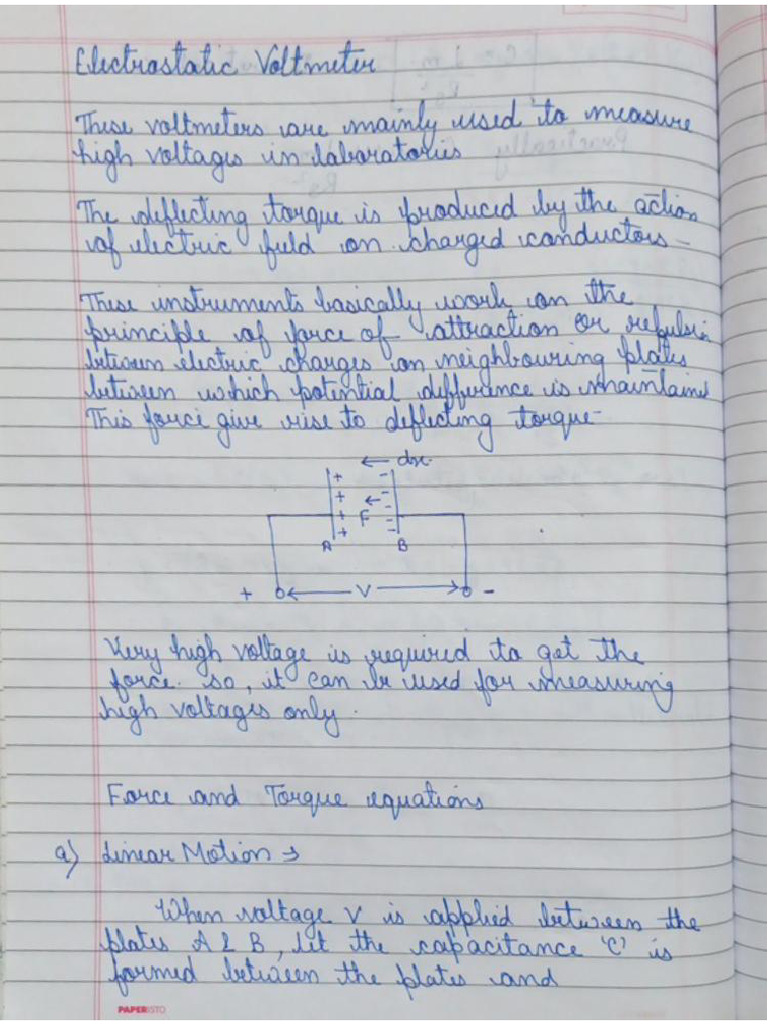 Electrostatic Voltmeter
These voltmeters are mainly used to measure
high voltages in laboratories
The deflecting torque is produced by the action
of electric field on charged conductors -
These instruments basically work on the
principle of force of attraction or repulsin
between electric charges on neighbouring plates
between which potential difference is maintaine
This force give rise to deflecting torque-
← dx.
+ -
+ ← -
+ F -
+ -
A B
+ V -
Very high voltage is required to get the
force. so, it can be used for measuring
high voltages only.
Force and Torque equations
a) Linear Motion ⇒
When voltage V is applied between the
plates A & B, let the capacitance 'C' is
formed between the plates and
PAPERISTO